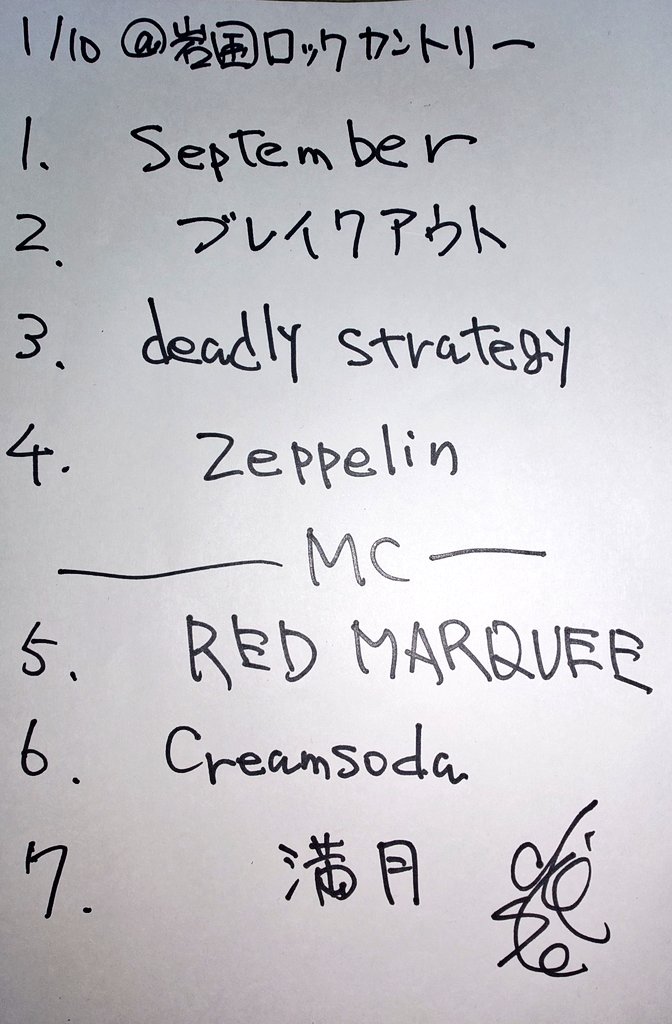 1/10 @岩国ロックカントリー
1. September
2. ブレイクアウト
3. deadly strategy
4. Zeppelin
MC
5. RED MARQUEE
6. Creamsoda
7. 満月